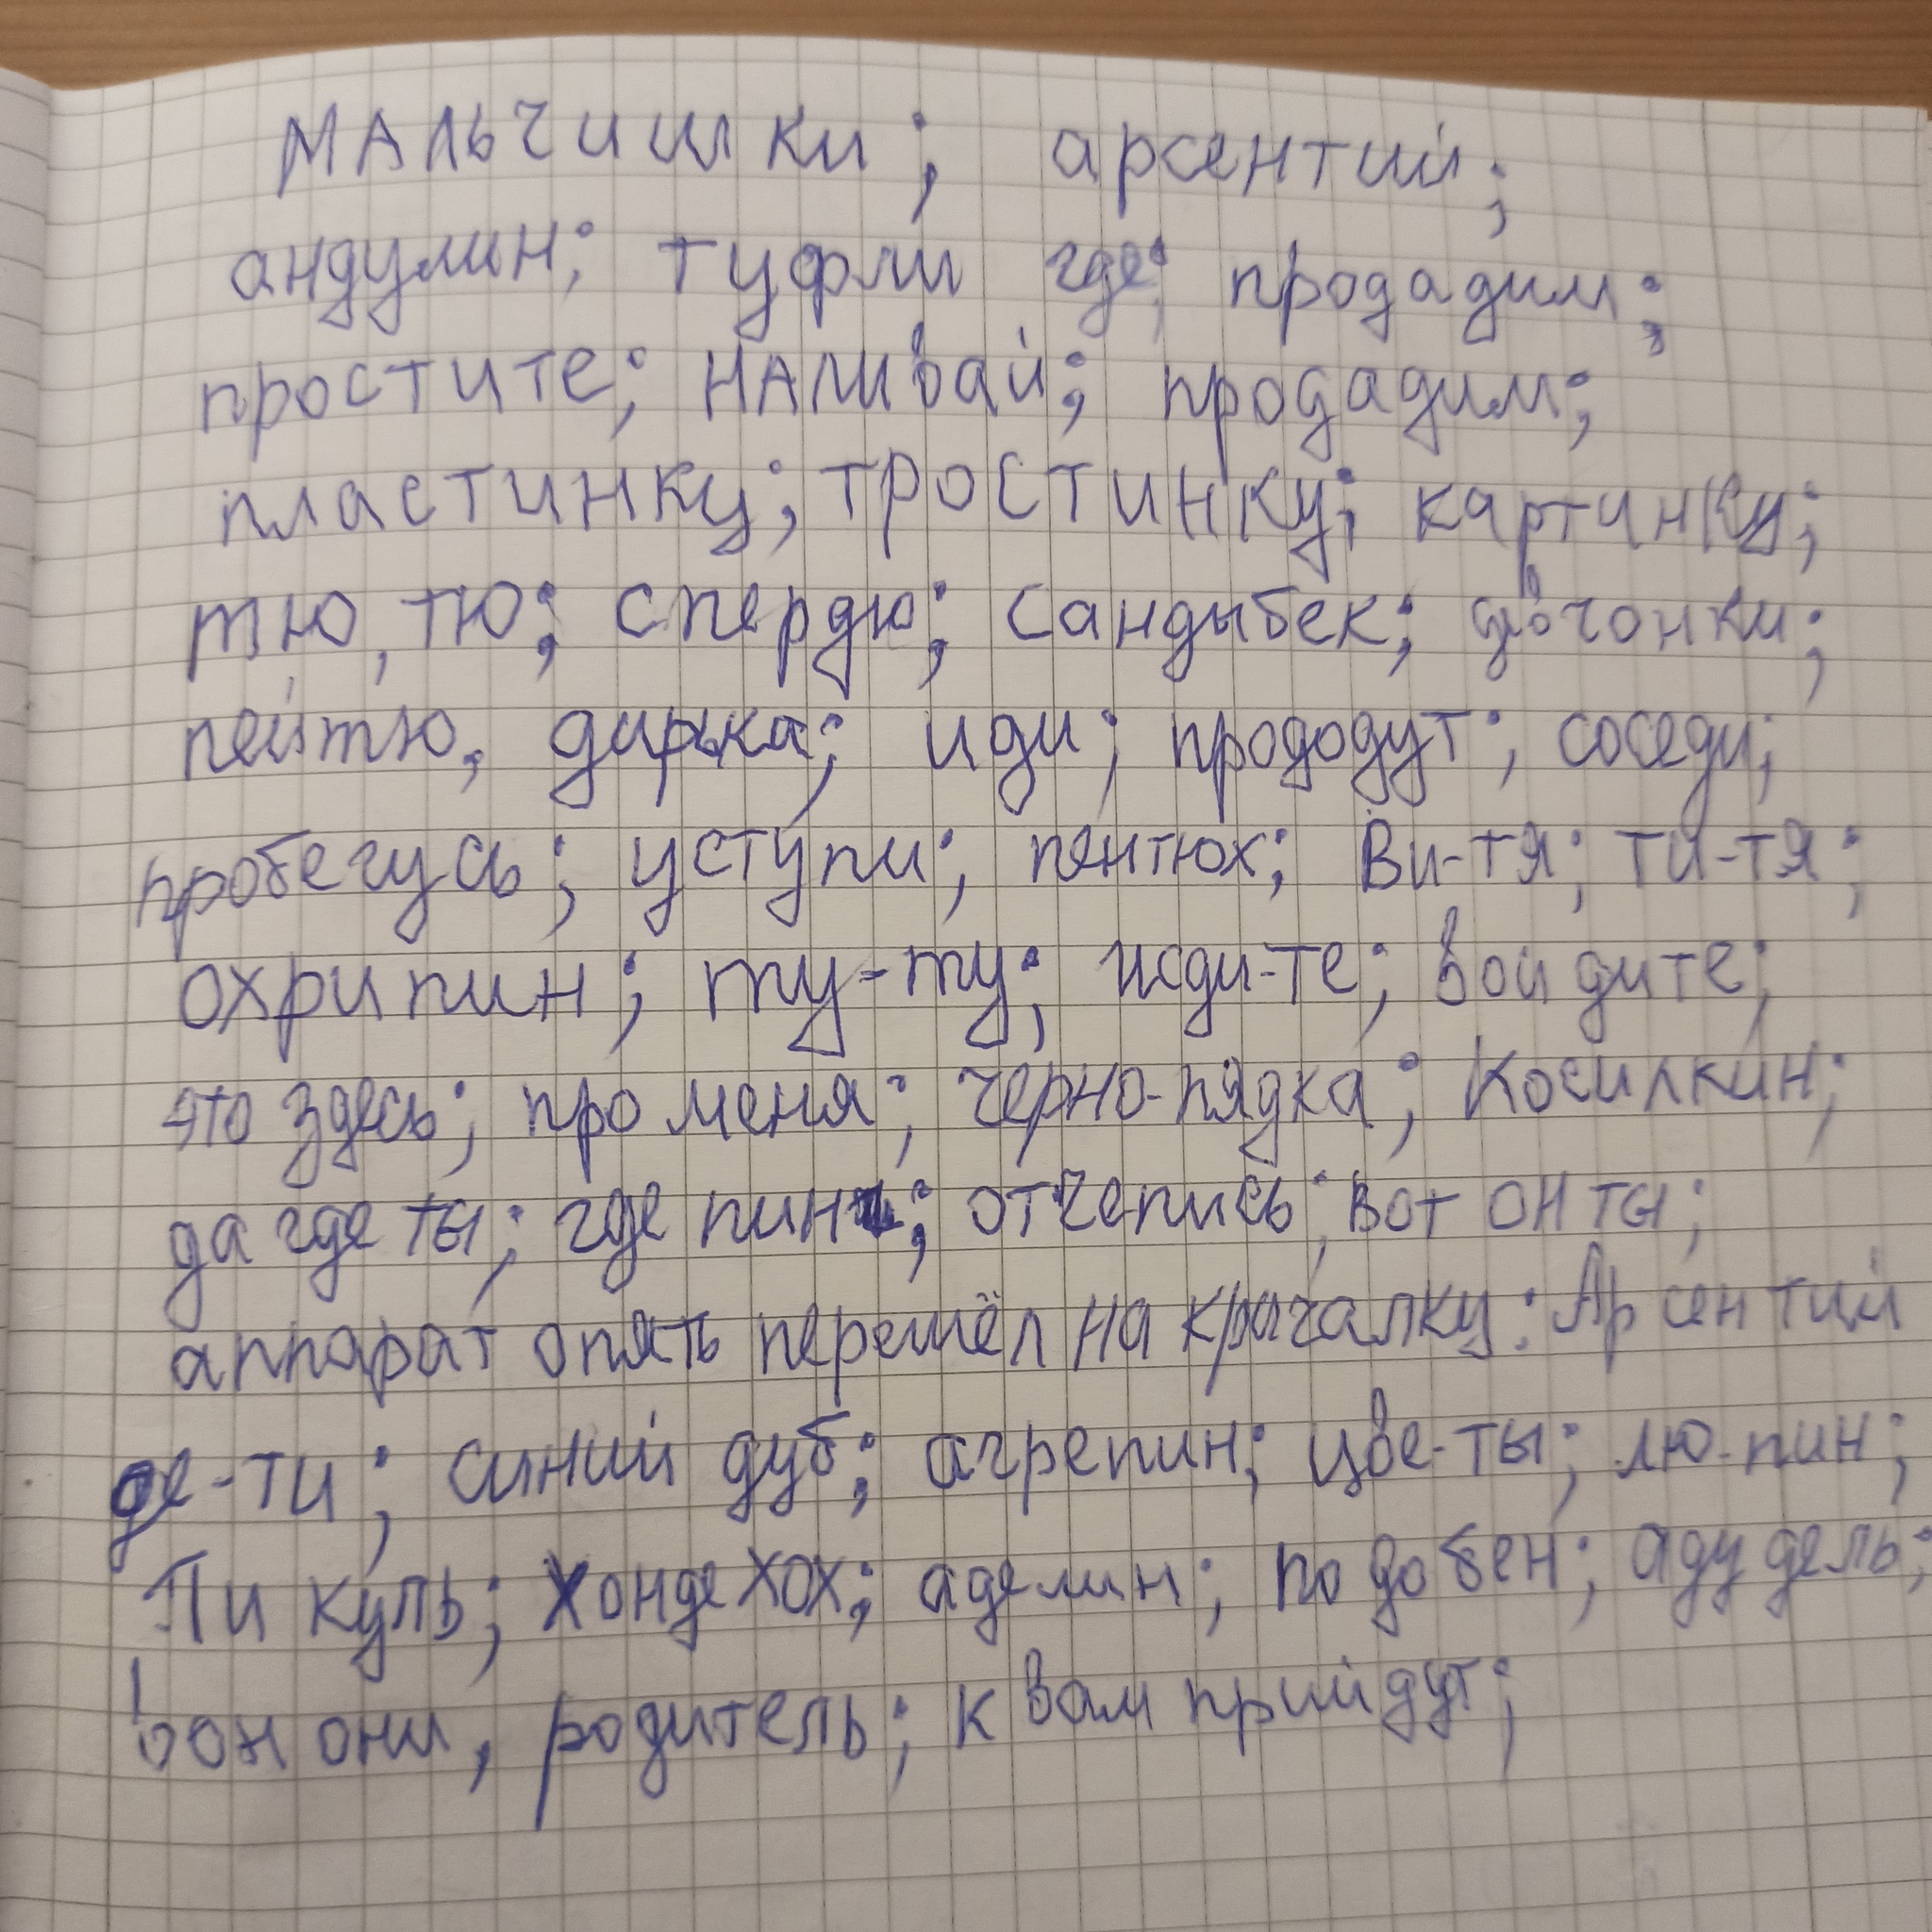 мальчишки; арсентий;
андулин; туфли где; продадим;
простите; наливай; продадим;
пластинку; тростинку; картинку;
тю, тю; спердю; сандыбек; дёвчонки;
пейтю, дирька; иди; прододут; соседи;
пробегусь; уступи; пентюх; Ви-тя; ти-тя;
охрипин; ту-ту; жди-те; войдите;
это здесь; про меня; черно-пядка; Косилкин;
да где ты; где пин; отчепись; вот он ты;
аппарат опять перешёл на крычалку: Арсентий
де-ти; синий дуб; агрепин; цве-ты; лю-пин;
Пикуль; хондехох; аделин; подобен; адудель;
вон они, родитель; к вам прийдут;